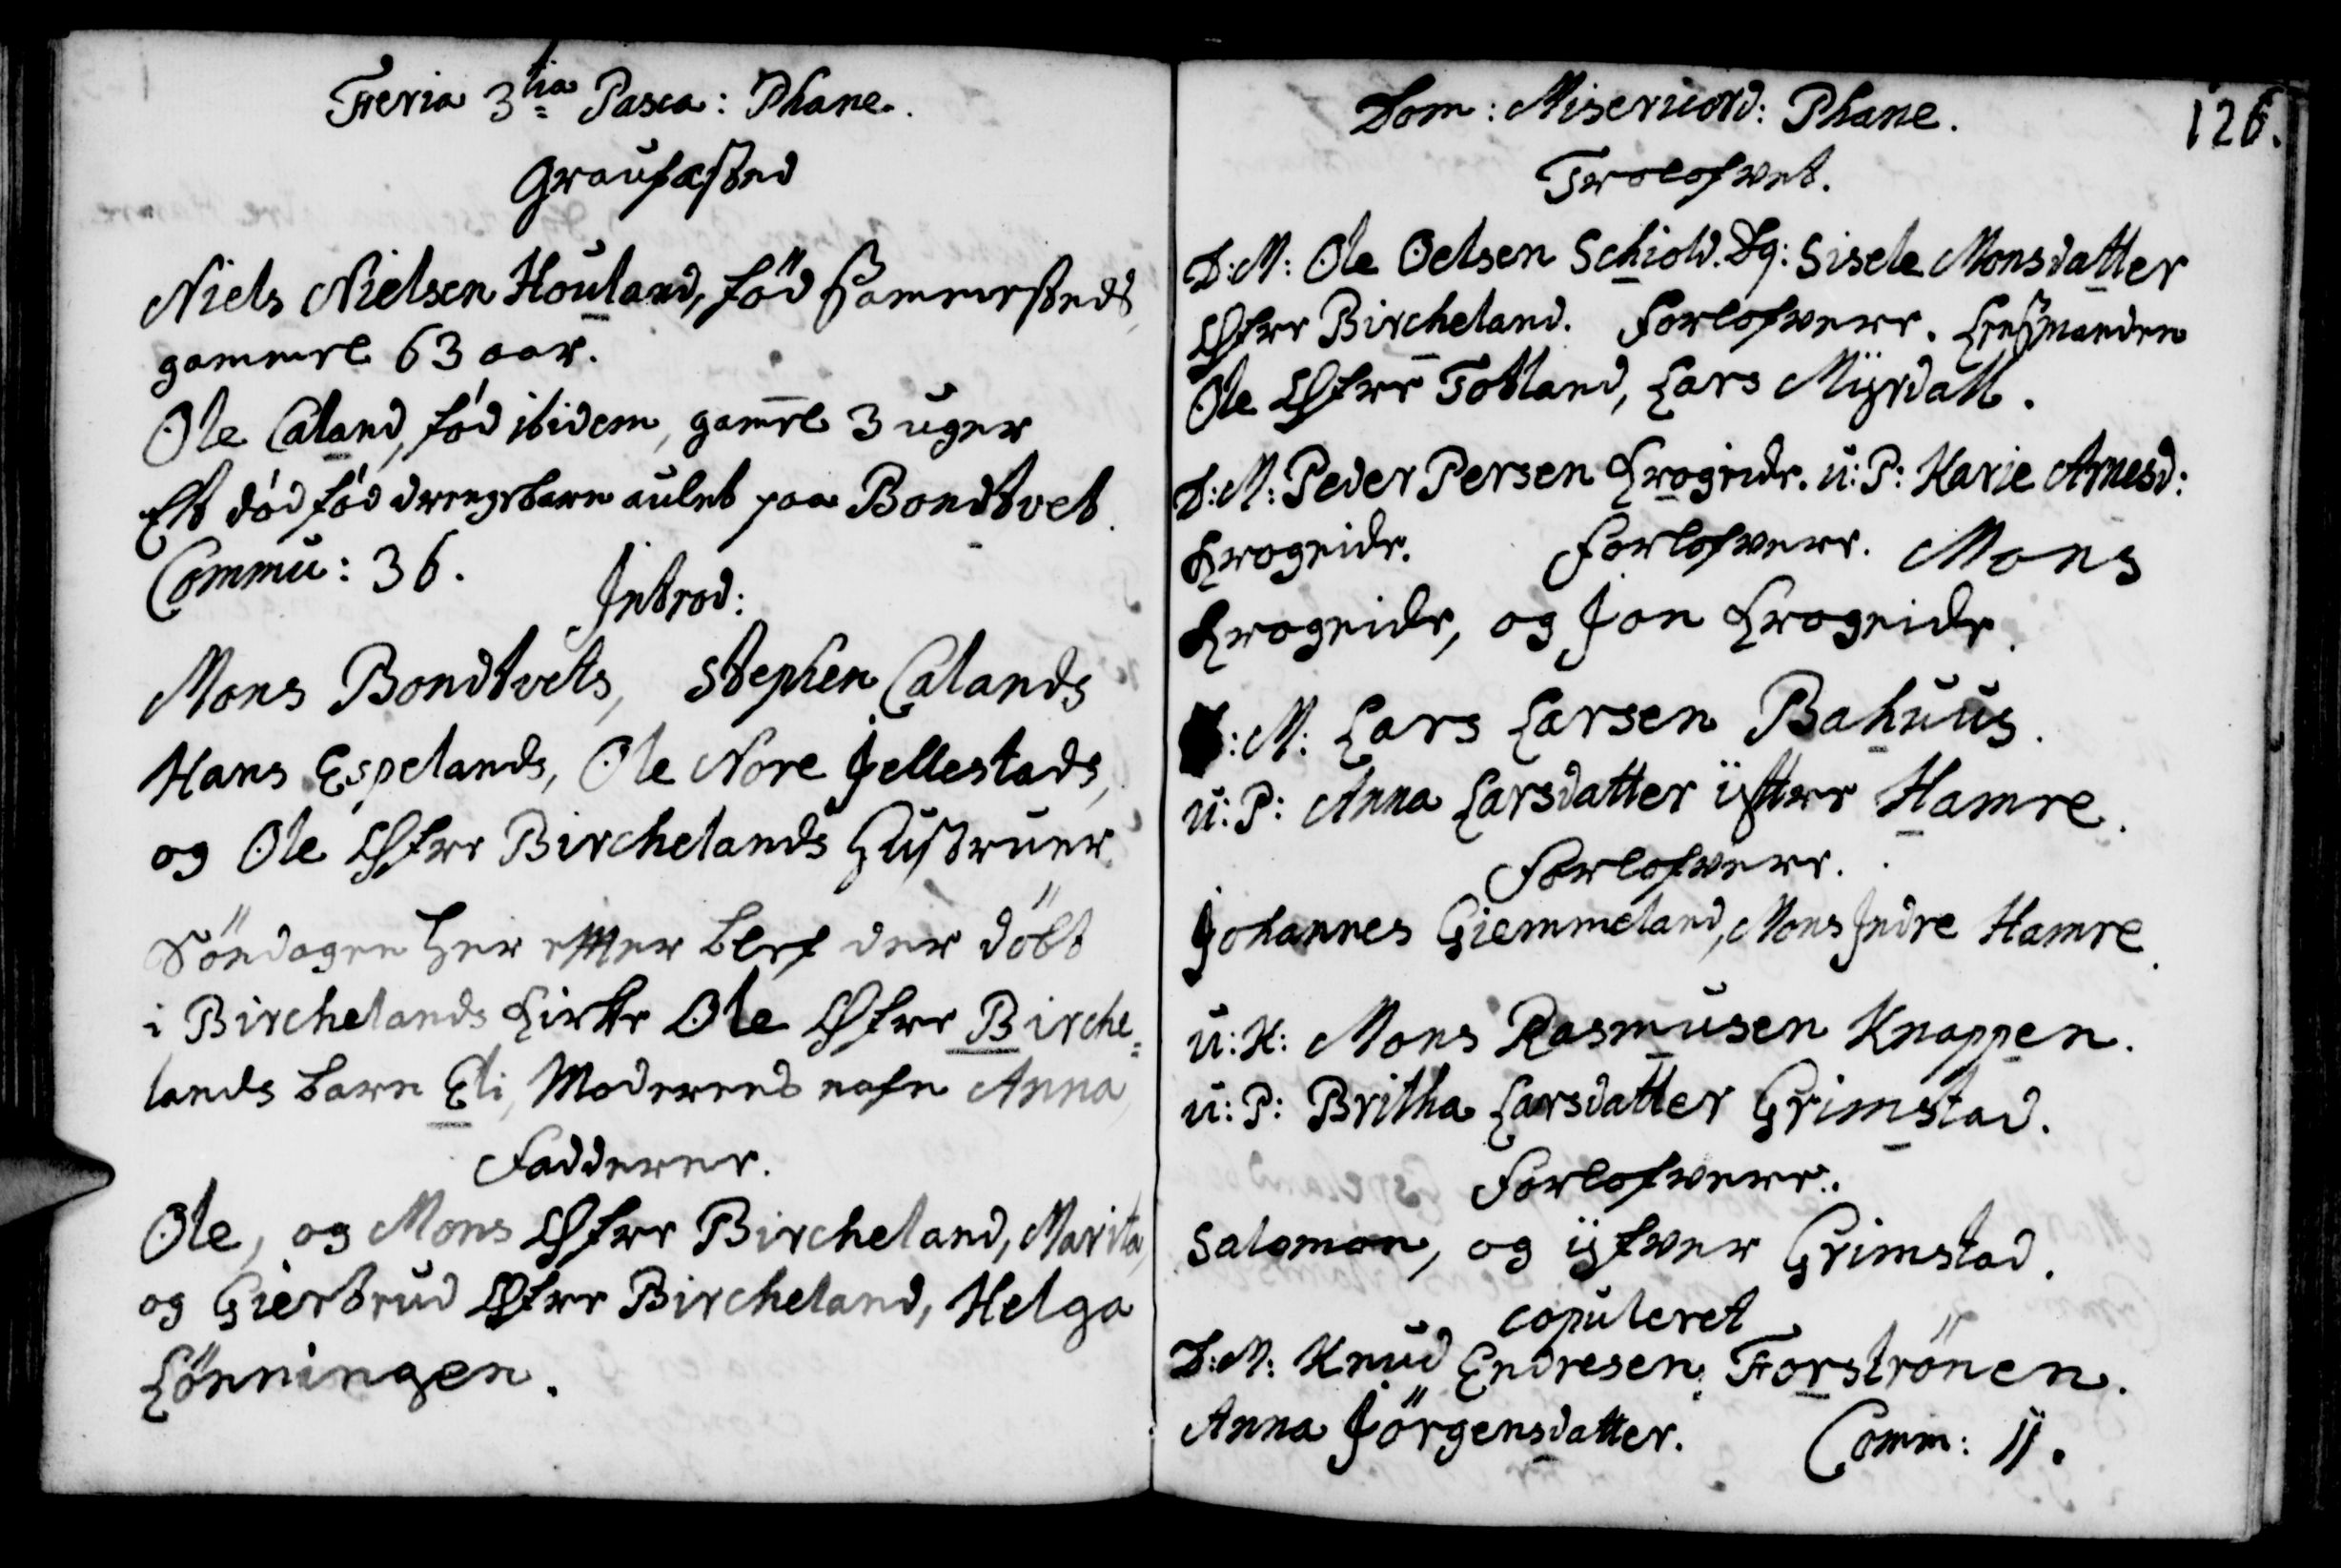 Feria 3tia Pasca: Phane.
Graufæsted
Niels Nielsen Houland, föd sammesteds,
gammel 63 aar.
Ole Caland, föd ibidem, gam̄el 3 uger
Et död föd drengebarn aulet paa Bondtvet.
Commu: 36.
Introd:
Mons Bondtvets, Stephen Calands
Hans Espelands, Ole Nore Jellestads,
og Ole Øfre Birchelands Hustruer
Söndagen her effter blef der döbt
i Birchelands Kirke Ole Øfre Birche=
lands barn Eli, Moderens nafn Anna
Fadderne.
Ole, og Mons Øfre Bircheland, Marita,
og Giertrud Øfre Bircheland, Helga
Lönningen.
126.
Dom: Misericord: Phane.
Trolofvet.
D:M: Ole Oelsen Schiold. Dg: Sisele Monsdatter
Øfre Bircheland. Forlofvere. Lensmanden
Ole Øfre Totland, Lars Mÿrdall.
D:M: Peder Persen Krogeide. u:P: Karie Arnesd:
Krogeide. Forlofvere. Mons
Krogeide, og Jon Krogeide.
:M: Lars Larsen Bahuus.
u:P: Anna Larsdatter ÿttre Hamre.
Forlofvere.
Johannes Giemmeland, Mons Indre Hamre.
u:K: Mons Rasmusen Knappen.
u:P: Britha Larsdatter Grimstad.
Forlofvere.
Salomon, og ÿfver Grimstad.
copuleret
D:M: Knud Endresen Forströnen.
Anna Jörgensdatter. Comm: 11.